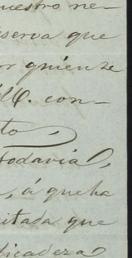 uestro ne-
serva que
or quien se
M. con-
to
Todavia,
, á que ha
itada que
dicadeza